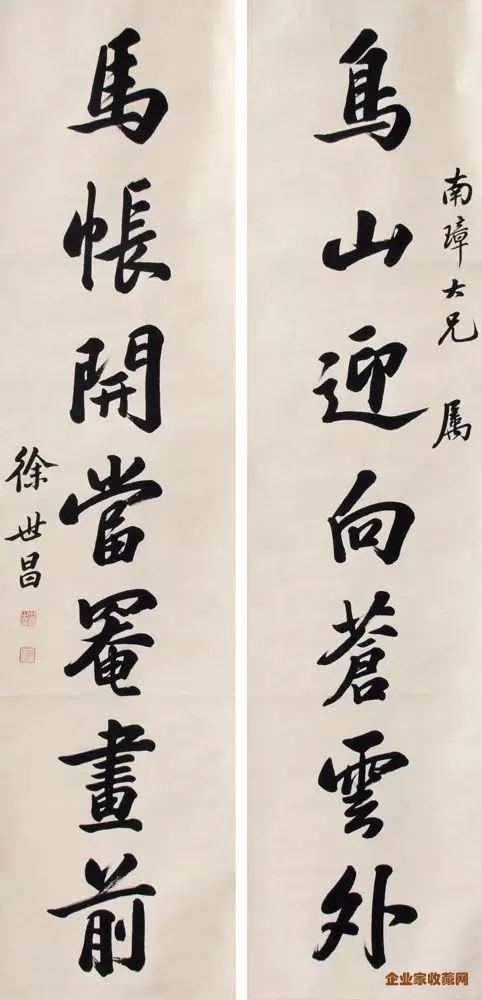 南璋大兄 属
鳥山迎向蒼雲外
馬帳開當罨畫前
徐世昌
企业家收藏网